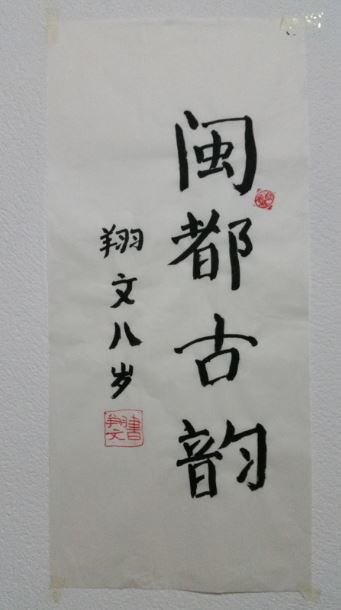 闽都古韵
翔文八岁
翔文
書